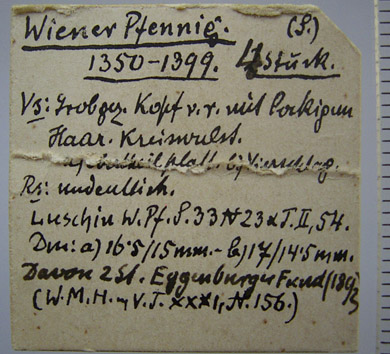 Wiener Pfennige. (S.)
1350-1399. 4 Stück.
Vs: Grobgez. Kopf v. r. mit lockigem
Haar. Kreiswulst.
b) Vierschlag.
Rs: undeutlich.
Luschin W. Pf. S. 33 N 23 u T. II, 54.
Dm: a) 16·5/15 mm. - b) 17/14·5 mm.
Davon 2 St. Eggenburger Fund
(W. M. H. V. J. XXXI, N. 156.)